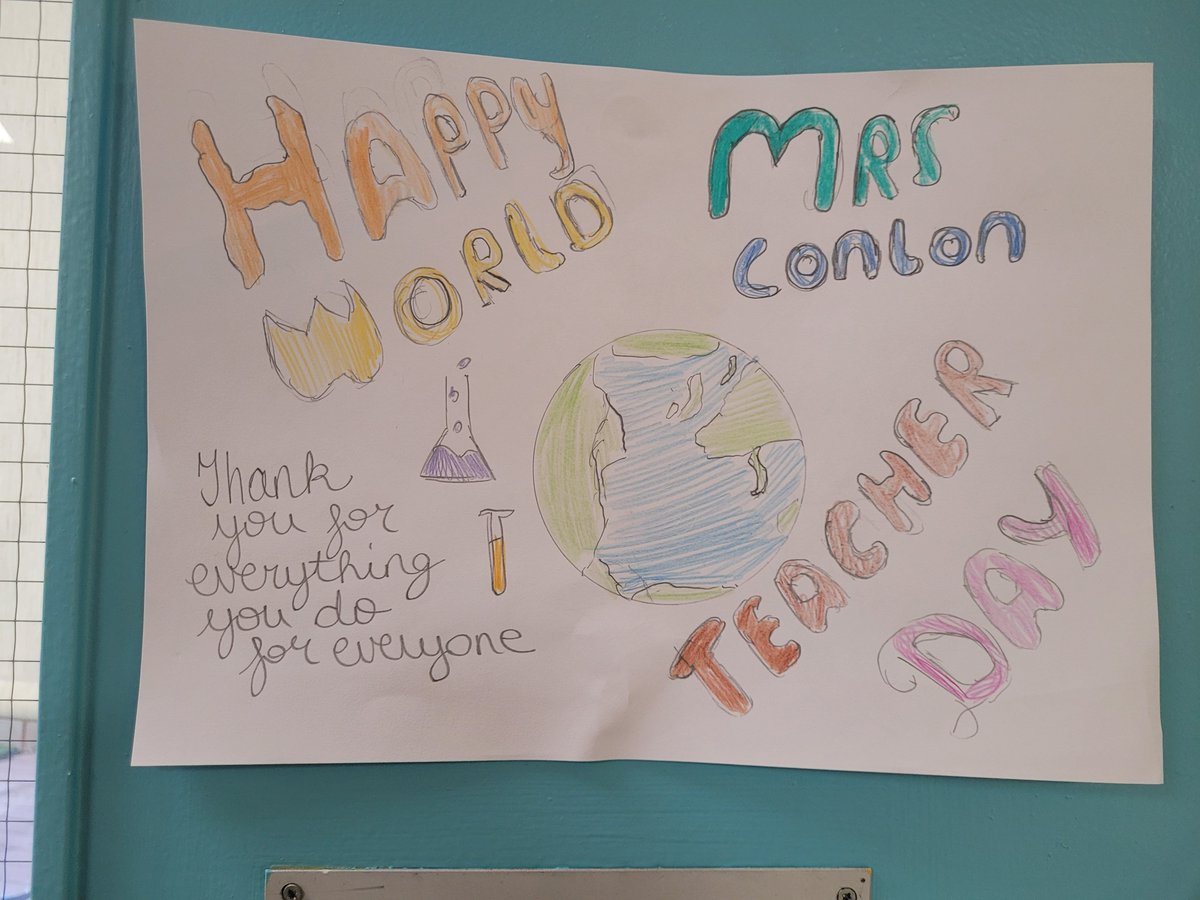 HAPPY
WORLD
MRS
CONLON
TEACHER
DAY
Thank
you for
everything
you do
for everyone